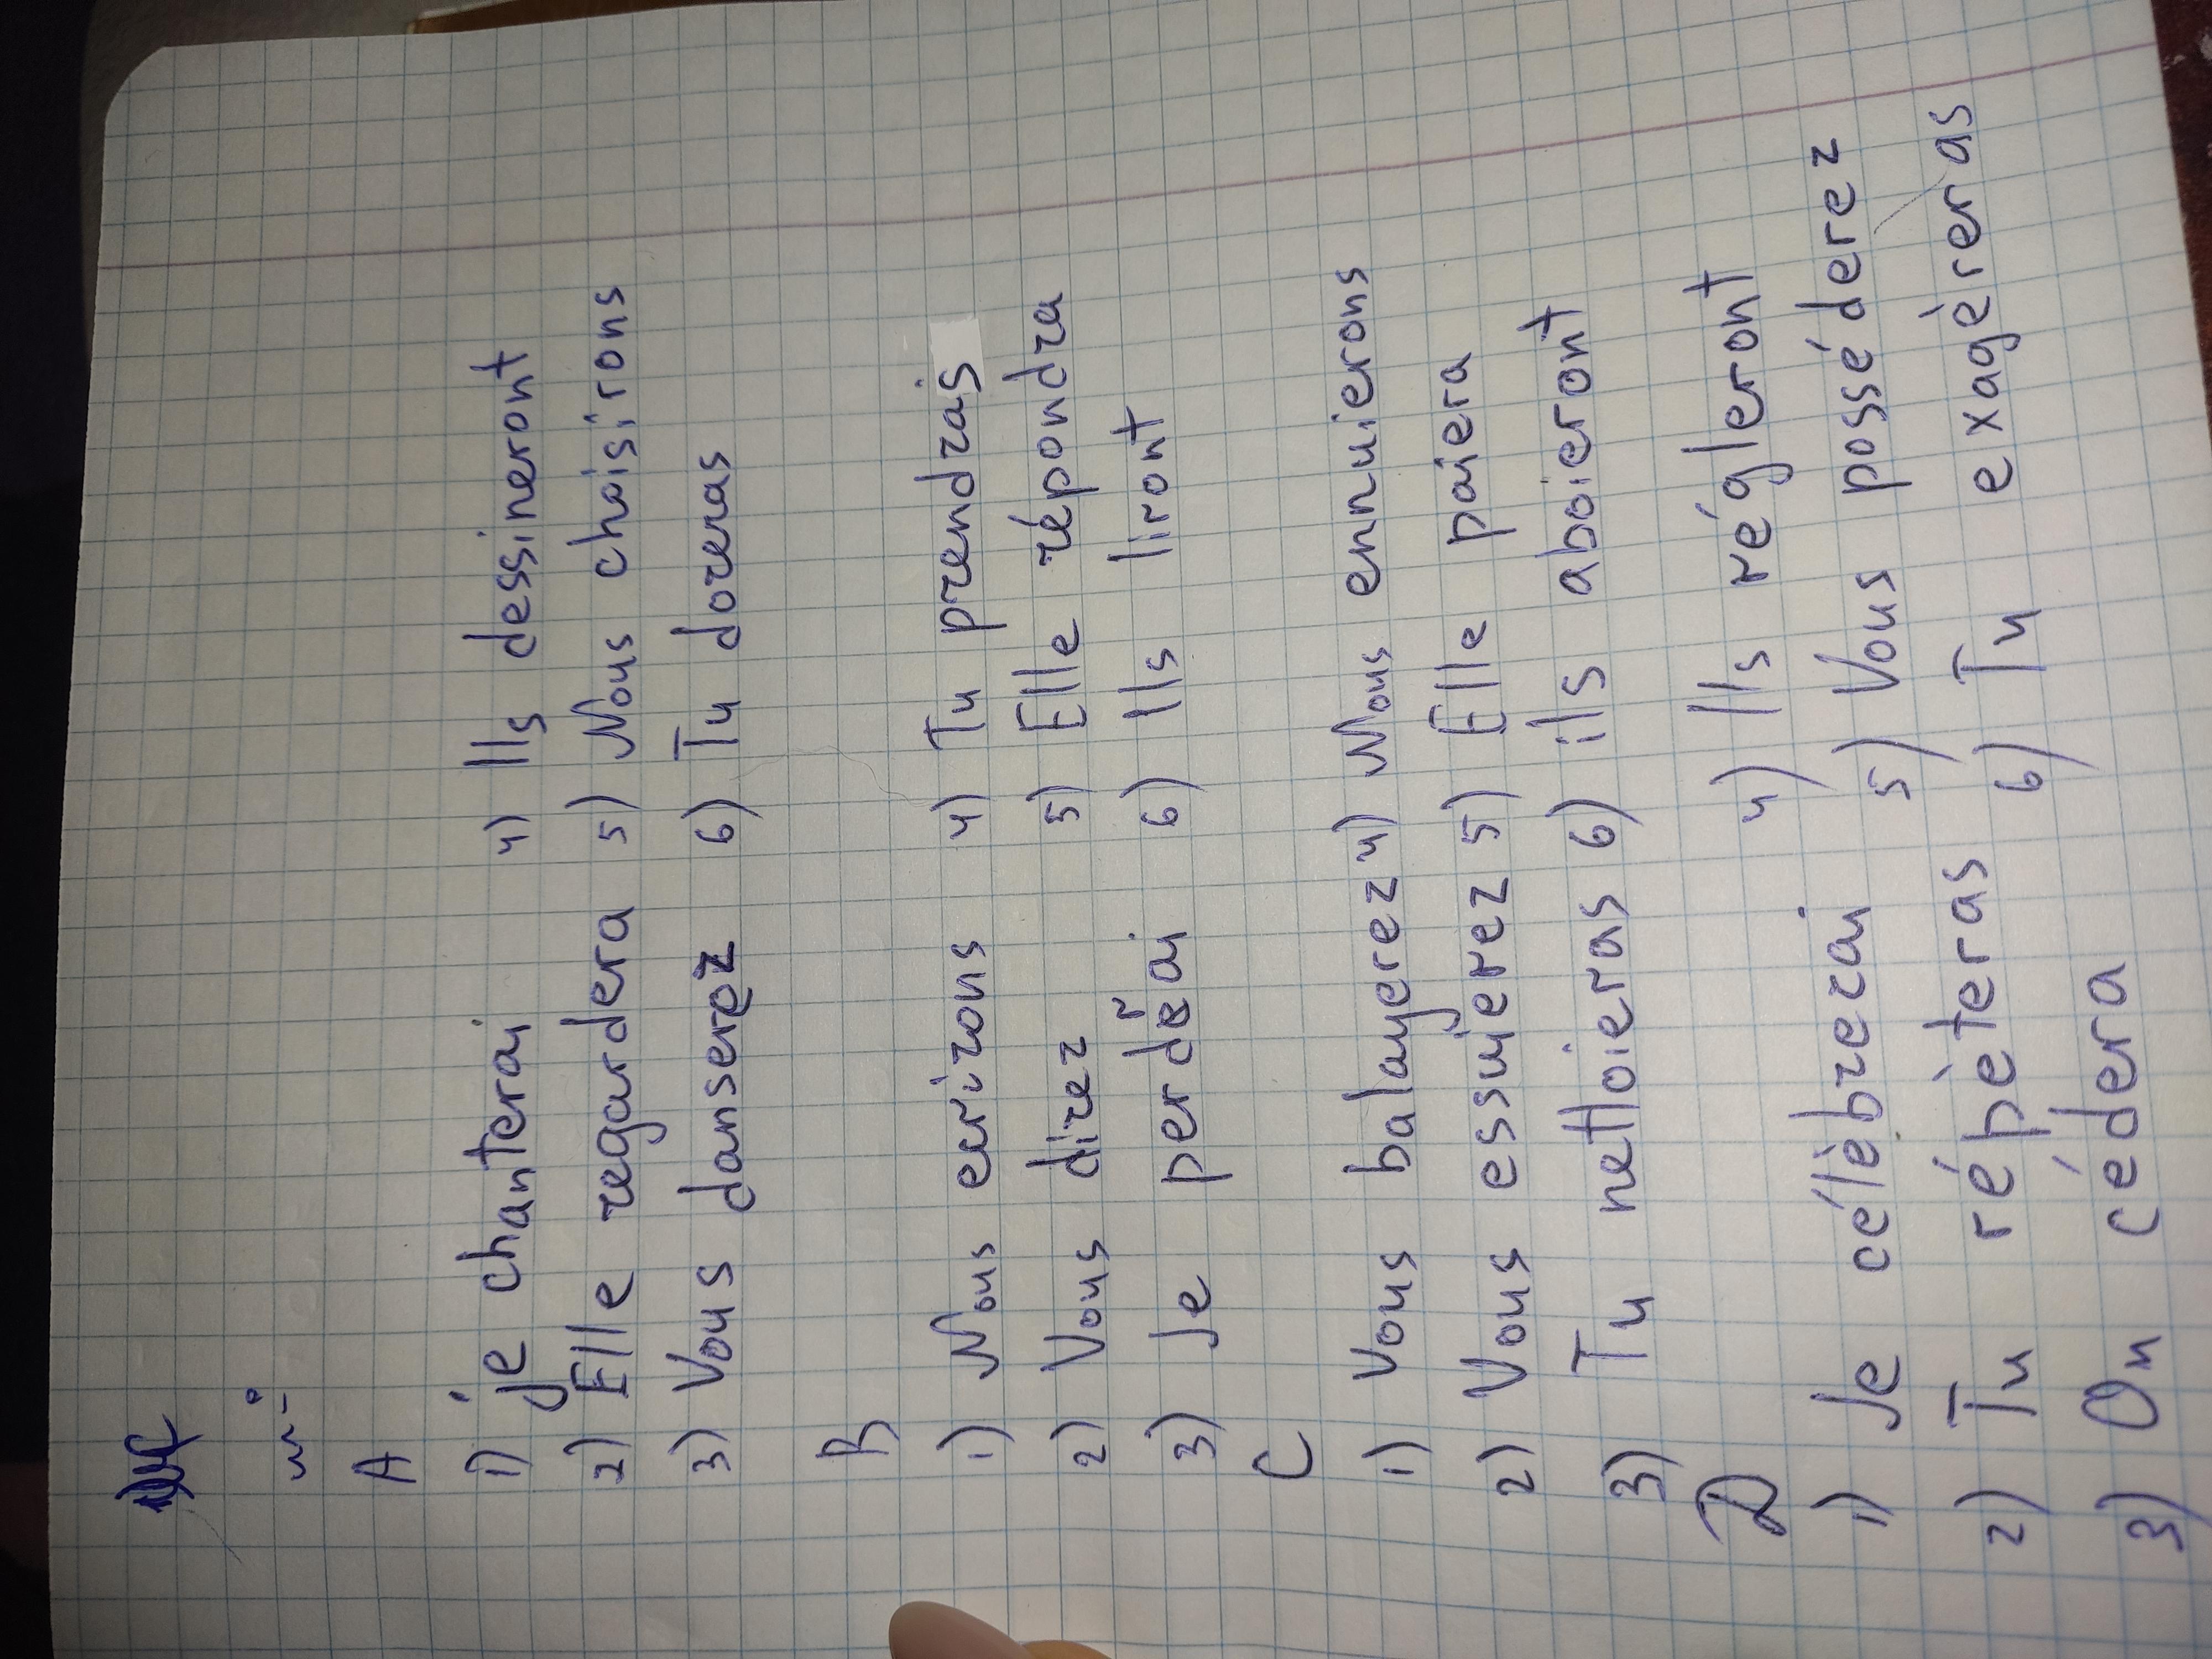 м-
A
1) je chanterai 4) Ils dessineront
2) Elle regardera 5) Nous choisirons
3) Vous danserez 6) Tu doreras
B
1) Nous ecrirons 4) Tu prendrais
2) Vous direz 5) Elle répondra
3) Je perdrai 6) Ils liront
C
1) Vous balayerez 4) Nous ennuierons
2) Vous essuierez 5) Elle paiera
3) Tu nettoieras 6) ils aboieront
D
1) Je célèbrerai 4) Ils régleront
2) Tu répèteras 5) Vous posséderez
3) On cédera 6) Tu exagèreras